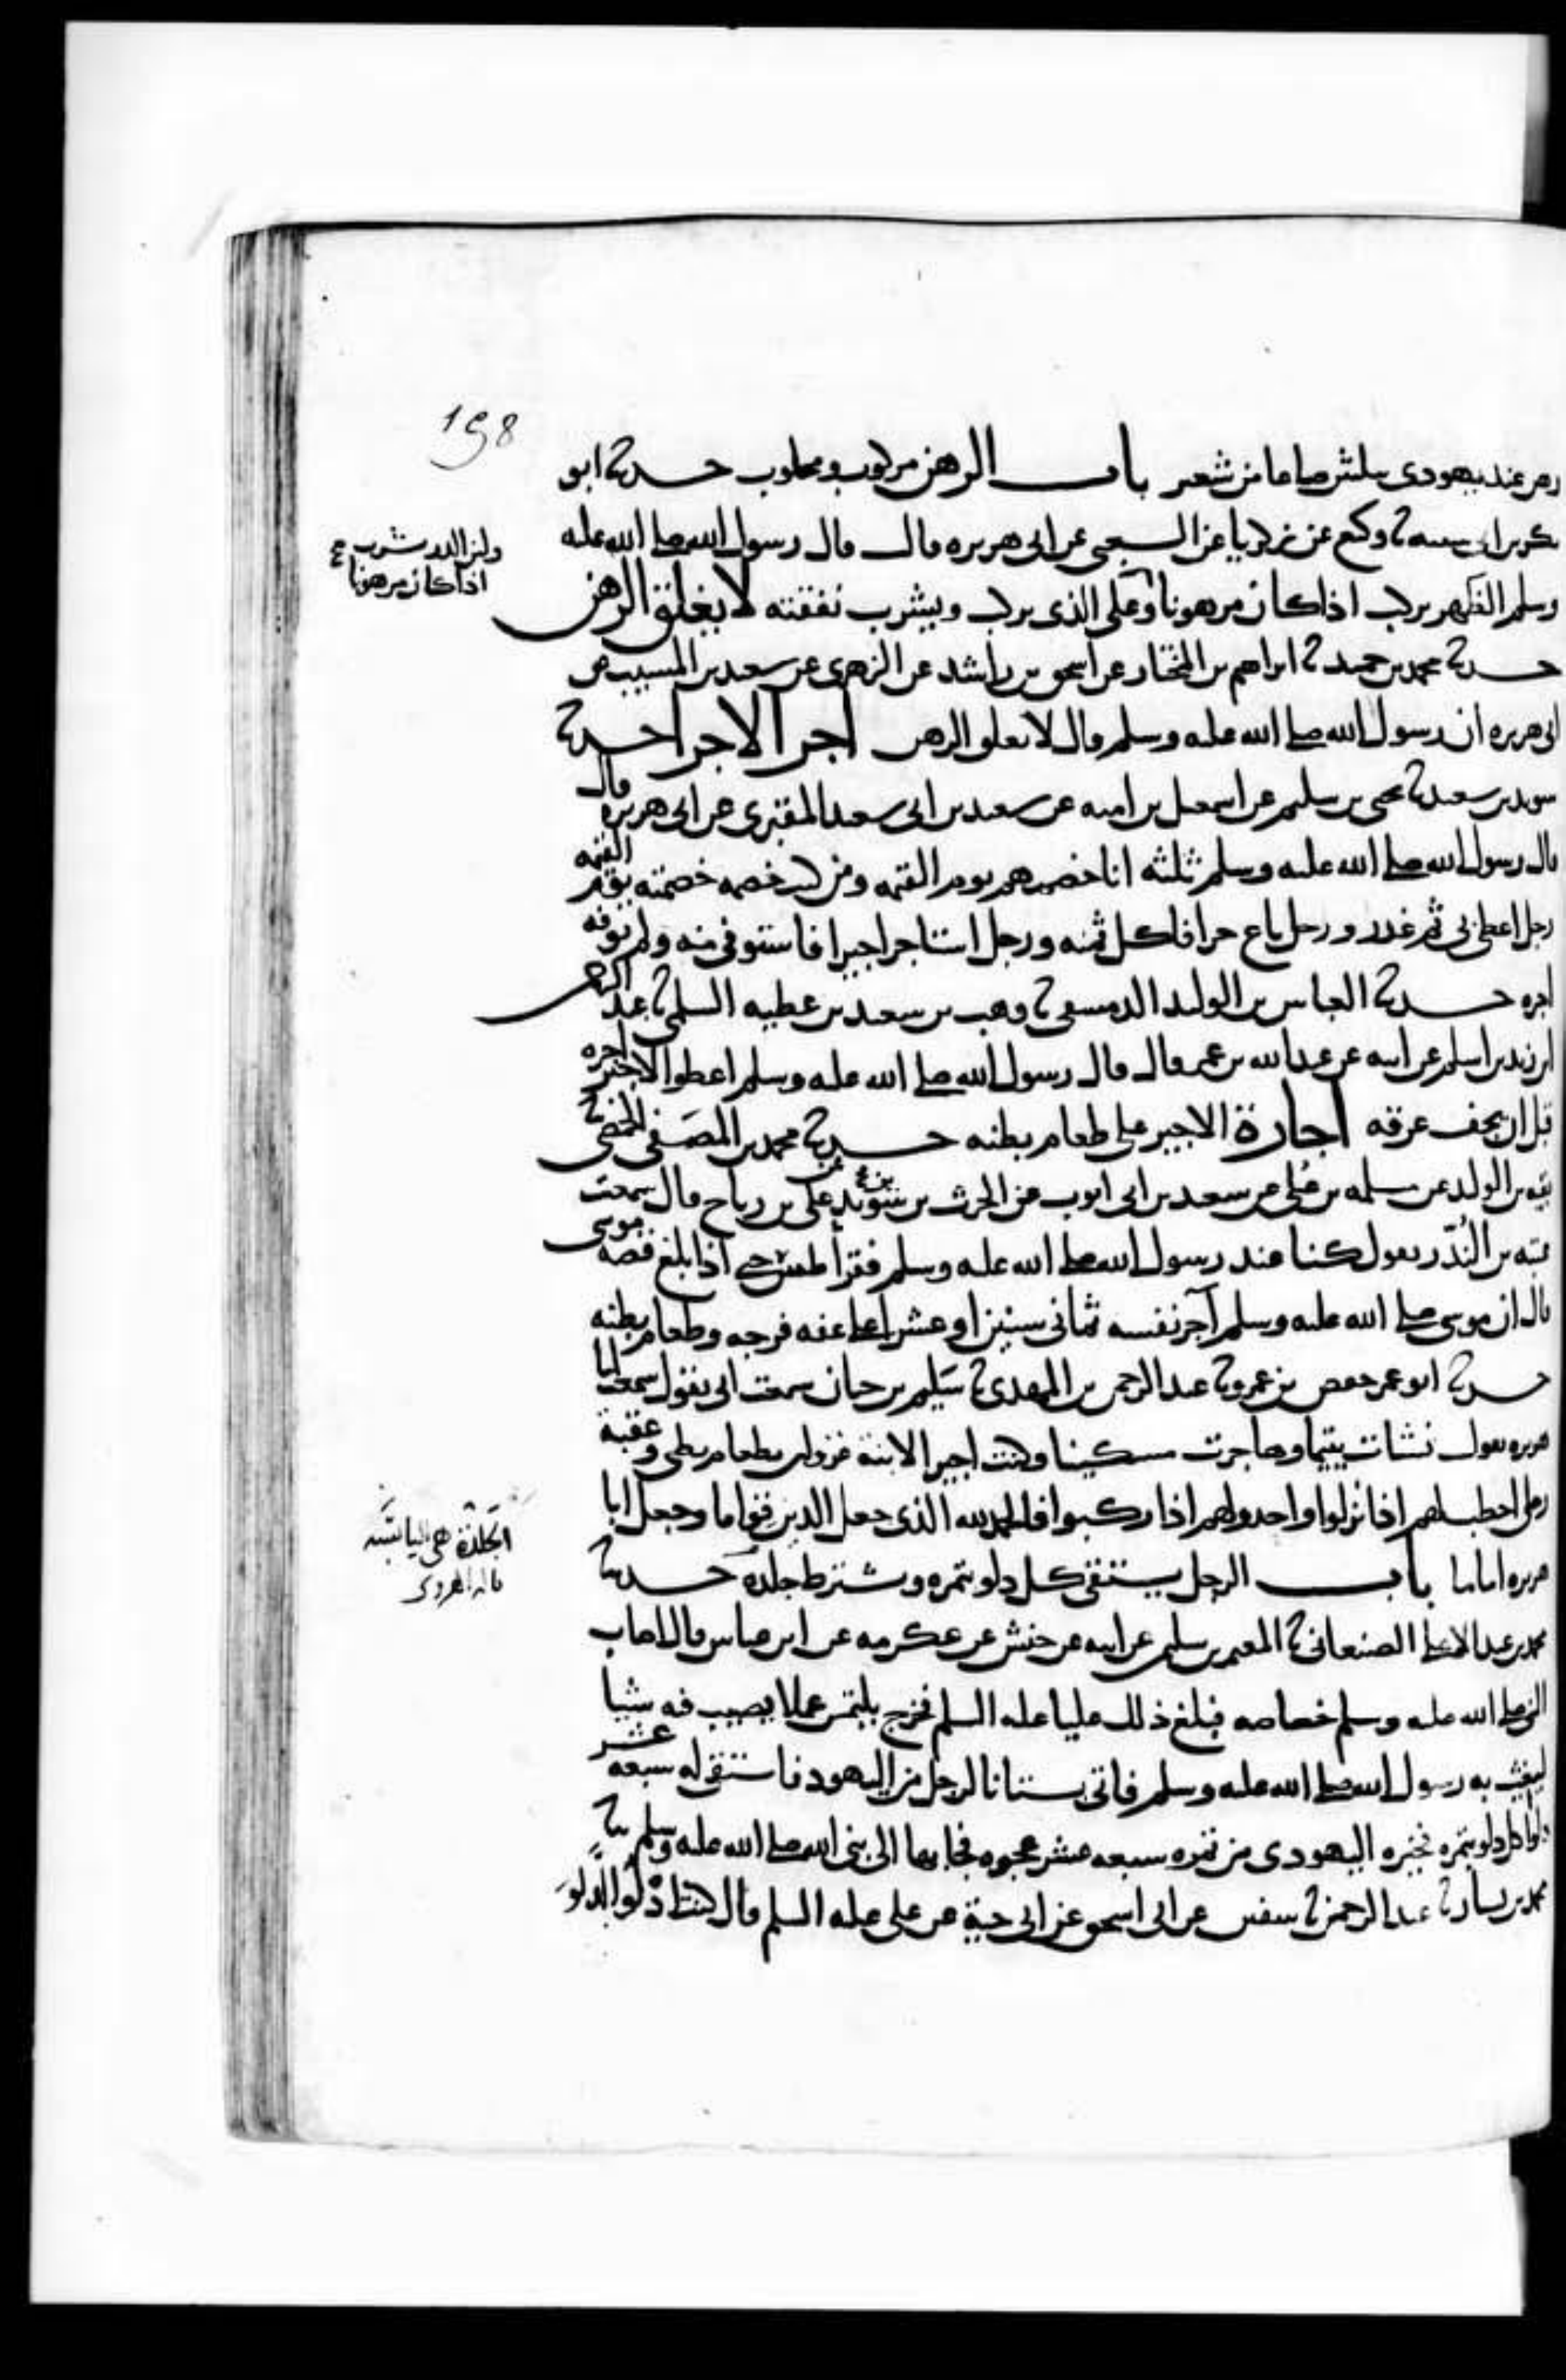 198
رهن عند يهودى بثلثين صاعا من شعير باب الرهن مركوب ومحلوب حدثنا ابو
بكر بن ابى شيبه نا وكيع عن زكريا عن الشعبى عن ابى هريره قال قال رسول الله صلى الله عليه
وسلم الظهر يركب اذا كان مرهونا وعلى الذى يركب ويشرب نفقته لا يغلق الرهن
ولبن الدر يشرب
اذا كان مرهونا
حدثنا محمد بن حميد نا ابراهيم بن المختار عن اسحق بن راشد عن الزهرى عن سعيد بن المسيب عن
ابى هريره ان رسول الله صلى الله عليه وسلم قال لا يغلق الرهن اجر الاجرا حدثنا
سويد بن سعيد نا يحيى بن سليم عن اسمعيل بن اميه عن سعيد بن ابى سعيد المقبرى عن ابى هريره قال
قال رسول الله صلى الله عليه وسلم ثلثه انا خصمهم يوم القيمه ومن كنت خصمه خصمته يوم القيمه
رجل اعطى بى ثم غدر ورجل باع حرا فاكل ثمنه ورجل استاجر اجيرا فاستوفى منه ولم يوفه
اجره حدثنا العباس بن الوليد الدمشقى نا وهب بن سعيد بن عطيه السلمى نا عبد الرحمن
ابن زيد بن اسلم عن ابيه عن عبد الله بن عمر قال قال رسول الله صلى الله عليه وسلم اعطوا الاجير اجره
قبل ان يجف عرقه اجارة الاجير على طعام بطنه حدثنا محمد بن المصفى الحمصى نا
بقيه بن الوليد عن مسلمه بن على عن سعيد بن ابى ايوب عن الحرث بن يزيد عن على بن رباح قال سمعت
عتبه بن الندر يقول كنا عند رسول الله صلى الله عليه وسلم فقرأ طس حتى اذا بلغ قصه موسى
قال ان موسى صلى الله عليه وسلم آجر نفسه ثمانى سنين او عشرا على عفه فرجه وطعام بطنه
حدثنا ابو عمر حفص بن عمرو نا عبد الرحمن بن المهدى نا سليم بن حيان سمعت ابى يقول سمعت ابا
هريره يقول نشات يتيما وهاجرت مسكينا وكنت اجيرا لابنة غزوان بطعام بطنى وعقبة
رجلى احطب لهم اذا نزلوا واحدو لهم اذا ركبوا فالحمد لله الذى جعل الدين قواما وجعل ابا
هريره اماما باب الرجل يستقى كل دلو بتمره ويشترط جلده حدثنا
الجلدة هى اليابسه
قاله الهروى
محمد بن عبد الاعلى الصنعانى نا المعتمر بن سليمن عن ابيه عن حنش عن عكرمه عن ابن عباس قال اصاب
النبى صلى الله عليه وسلم خصاصه فبلغ ذلك عليا عليه السلم فخرج يلتمس عملا يصيب فيه شيئا
ليغيث به رسول الله صلى الله عليه وسلم فاتى بستانا لرجل من اليهود فاستقى له سبعه عشر
دلوا كل دلو بتمره فخيره اليهودى من تمره سبعه عشر عجوه فجا بها الى نبى الله صلى الله عليه وسلم نا
محمد بن بشار نا عبد الرحمن نا سفين عن ابى اسحق عن ابى حية عن على عليه السلم قال كنت ادلو الدلو